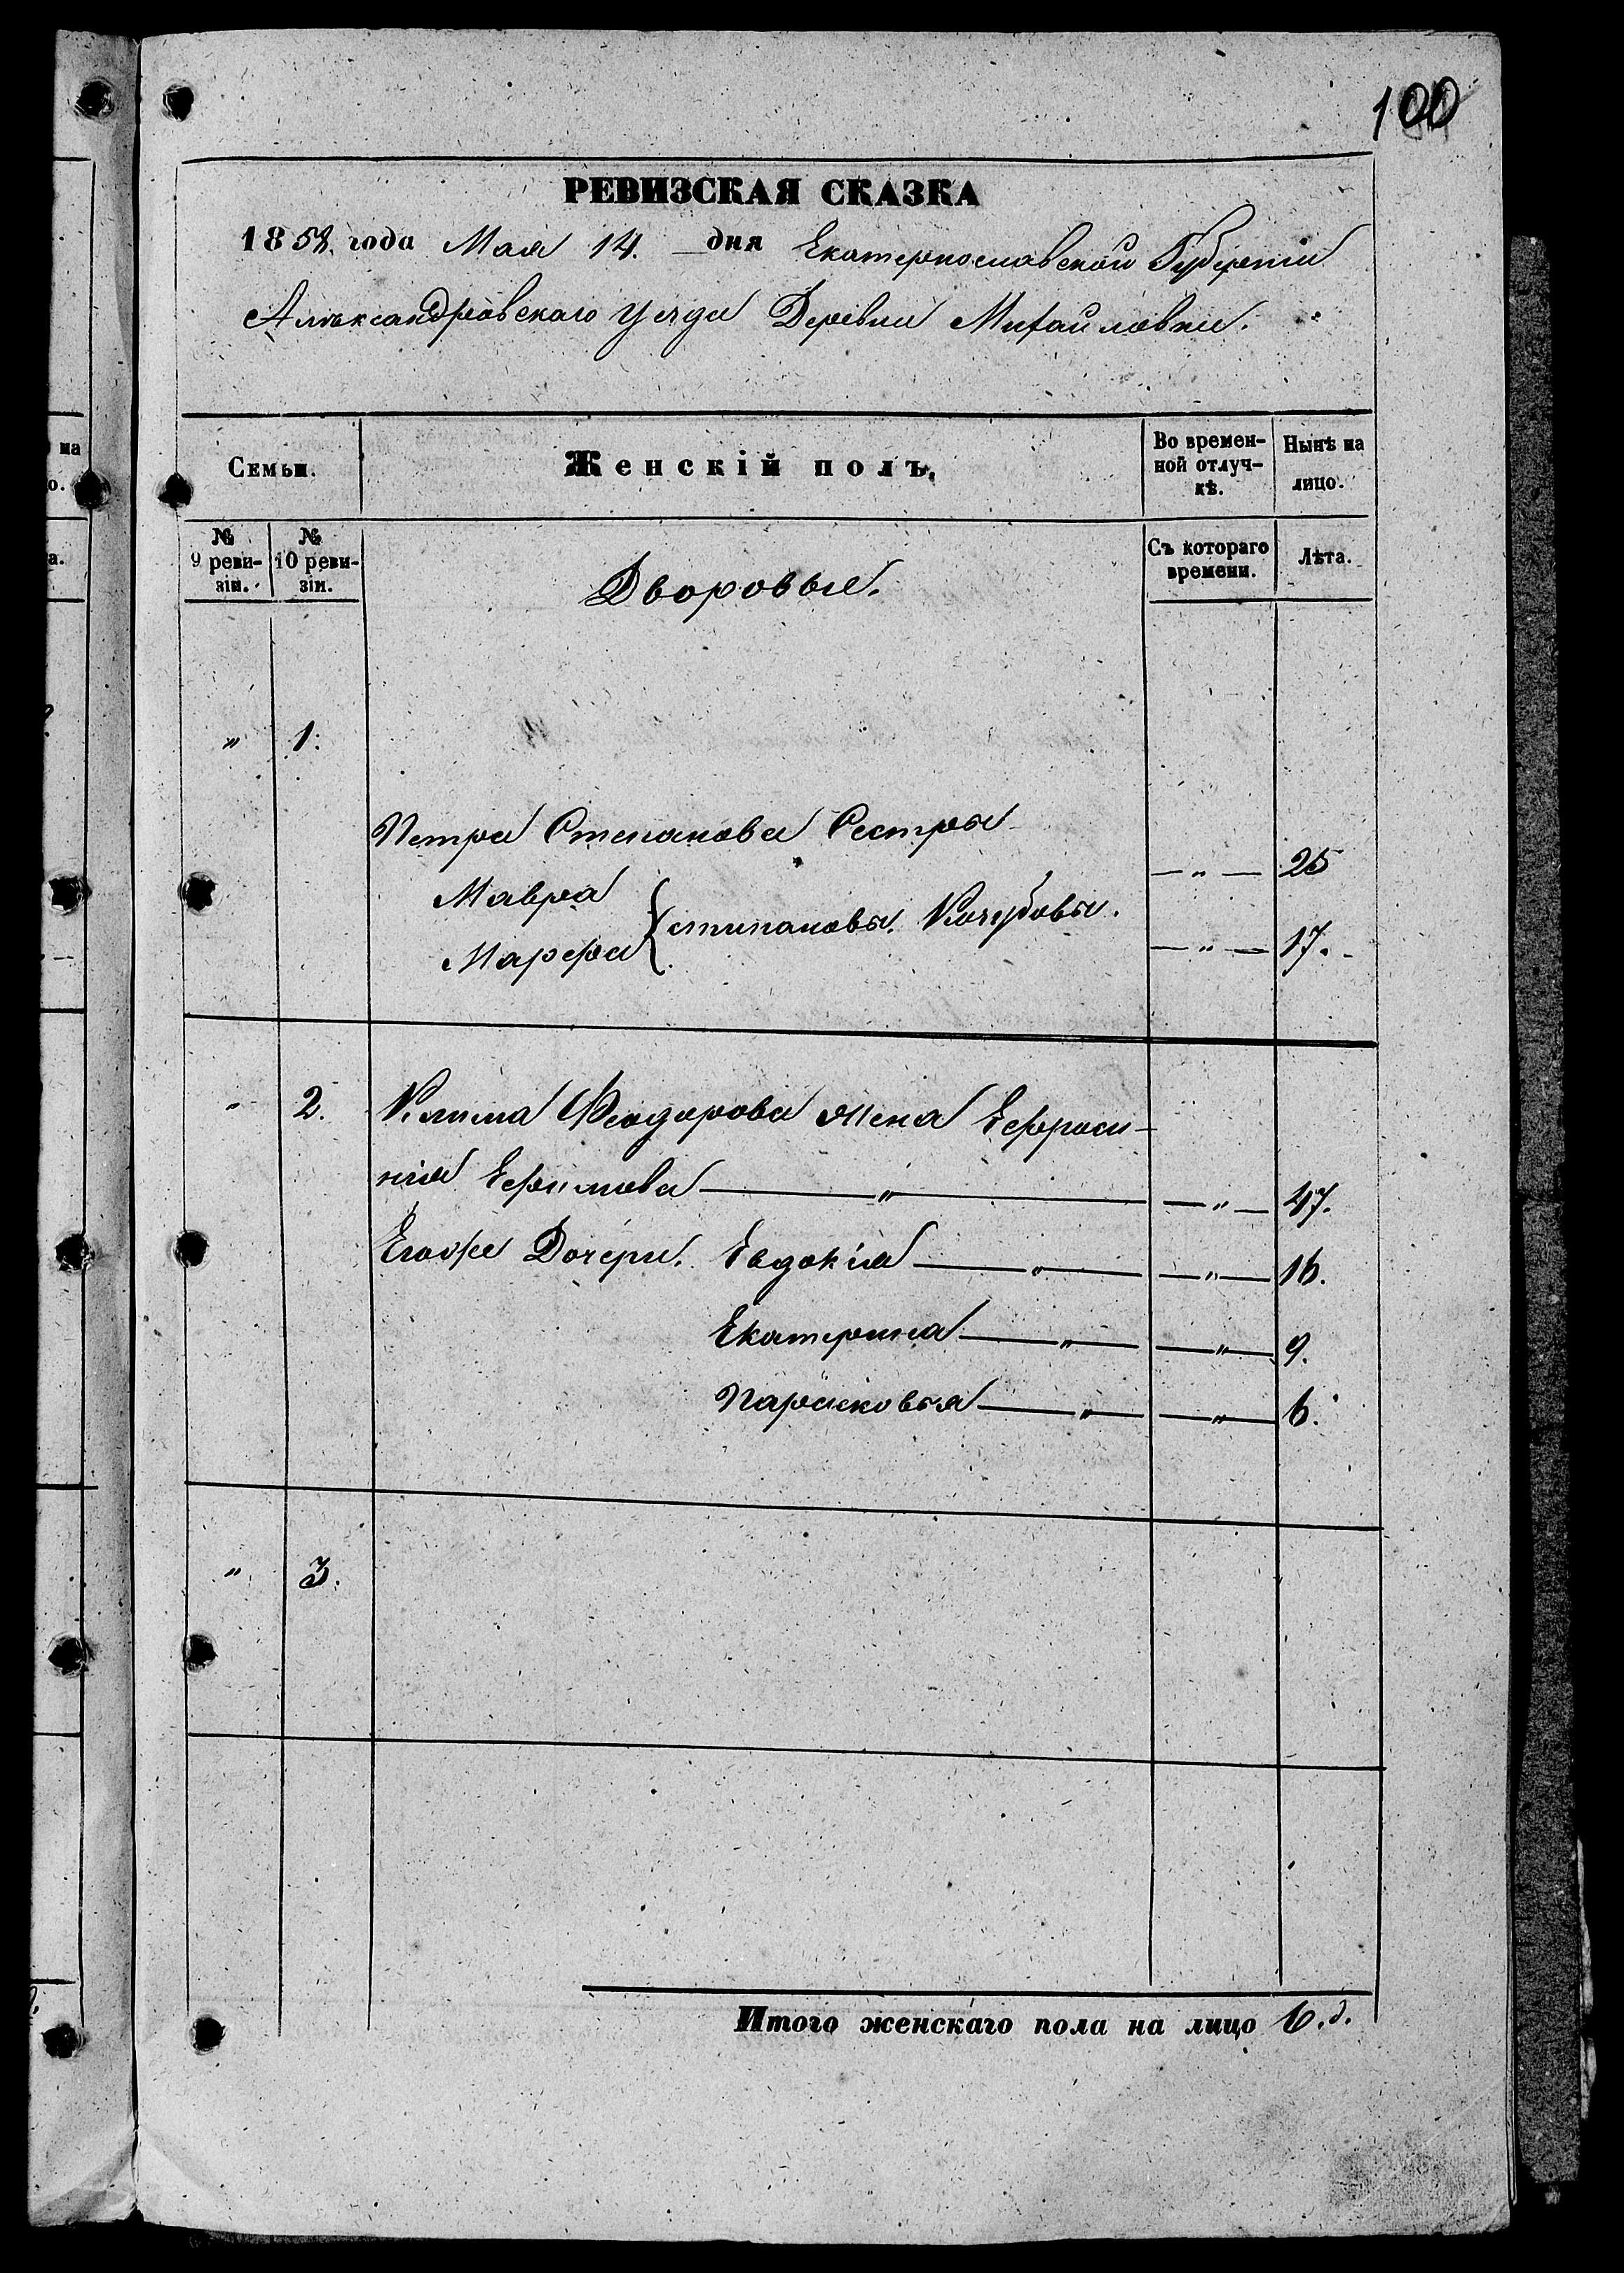 100
РЕВИЗСКАЯ СКАЗКА
1858 года Мая 14. дня Екатеринославской Губерніи
Александровскаго уезда Деревни Михайловки.
Семьи.
Женскій полъ.
Во времен-
ной отлуч-
кѣ.
Нынѣ на
лицо.
№
9 реви-
зіи.
№
10 реви-
зіи.
Дворовые.
Съ котораго
времени.
Лѣта.
" 1.
Петра Степанова Сестры
Мавра — " — 25
степановы Кочубовы.
Марфа — " — 17.
" 2. Клима Феодорова жена Ефроси-
нія Ефимова — " — — " — 47.
Егоже Дочери. Евдокія — " — — " — 16.
Екатерина — " — — " — 9.
Парасковья — " — — " — 6.
" 3.
Итого женскаго пола на лицо 6.д.
на
о.
а.